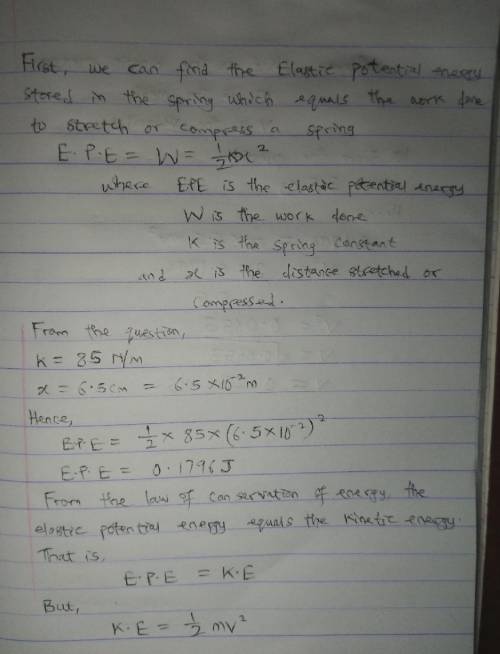 First, we can find the Elastic potential energy
stored in the spring which equals the work done
to stretch or compress a spring
E.P.E = W = ½kx²
where EPE is the elastic potential energy
W is the work done
K is the spring constant
and x is the distance stretched or
compressed.
From the question,
k = 85 N/m
x = 6.5cm = 6.5 × 10⁻² m
Hence,
E.P.E = ½ × 85 × (6.5 × 10⁻²)²
E.P.E = 0.1796J
From the law of conservation of energy, the
elastic potential energy equals the kinetic energy.
That is,
E.P.E = K.E
But,
K.E = ½ mv²